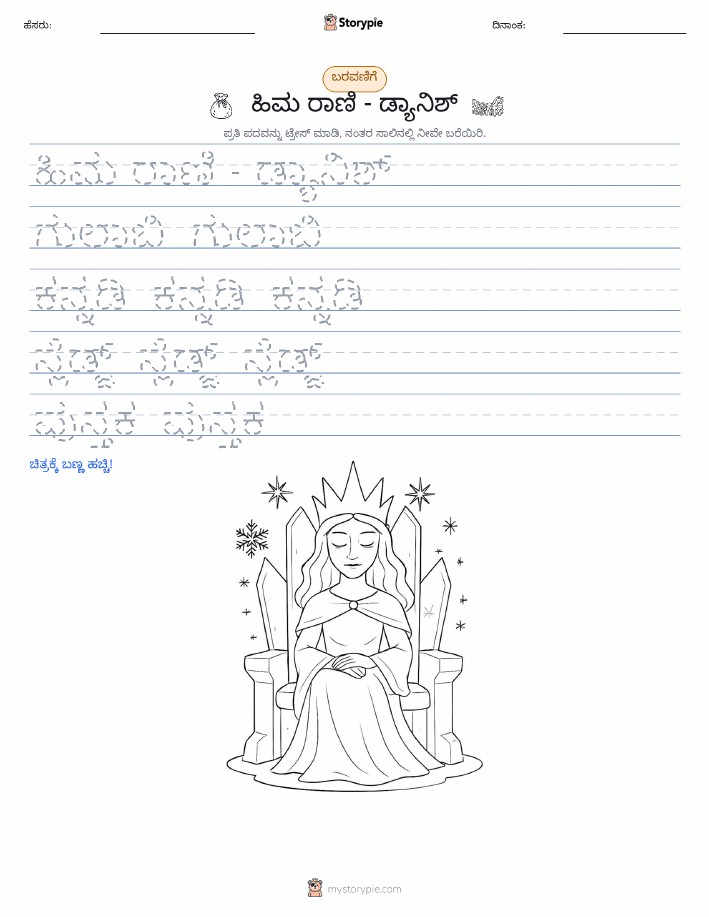 ಹೆಸರು:
Storypie
ದಿನಾಂಕ:
ಬರವಣಿಗೆ
ಹಿಮ ರಾಣಿ - ಡ್ಯಾನಿಶ್
ಪ್ರತಿ ಪದವನ್ನು ಟ್ರೇಸ್ ಮಾಡಿ, ನಂತರ ಸಾಲಿನಲ್ಲಿ ನೀವೇ ಬರೆಯಿರಿ.
ಹಿಮ ರಾಣಿ - ಡ್ಯಾನಿಶ್
ಗುಲಾಬಿ ಗುಲಾಬಿ
ಕನ್ನಡಿ ಕನ್ನಡಿ ಕನ್ನಡಿ
ಸ್ಲೆಡ್ಜ್ ಸ್ಲೆಡ್ಜ್ ಸ್ಲೆಡ್ಜ್
ಪುಸ್ತಕ ಪುಸ್ತಕ
ಚಿತ್ರಕ್ಕೆ ಬಣ್ಣ ಹಚ್ಚಿ!
mystorypie.com